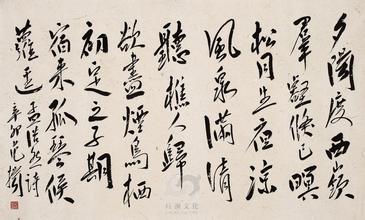 夕陽度西嶺
羣壑倏已暝
松月生夜涼
風泉滿清
聽樵人歸
欲盡煙鳥棲
初定之子期
宿來孤琴候
蘿逕 孟浩然詩
辛卯